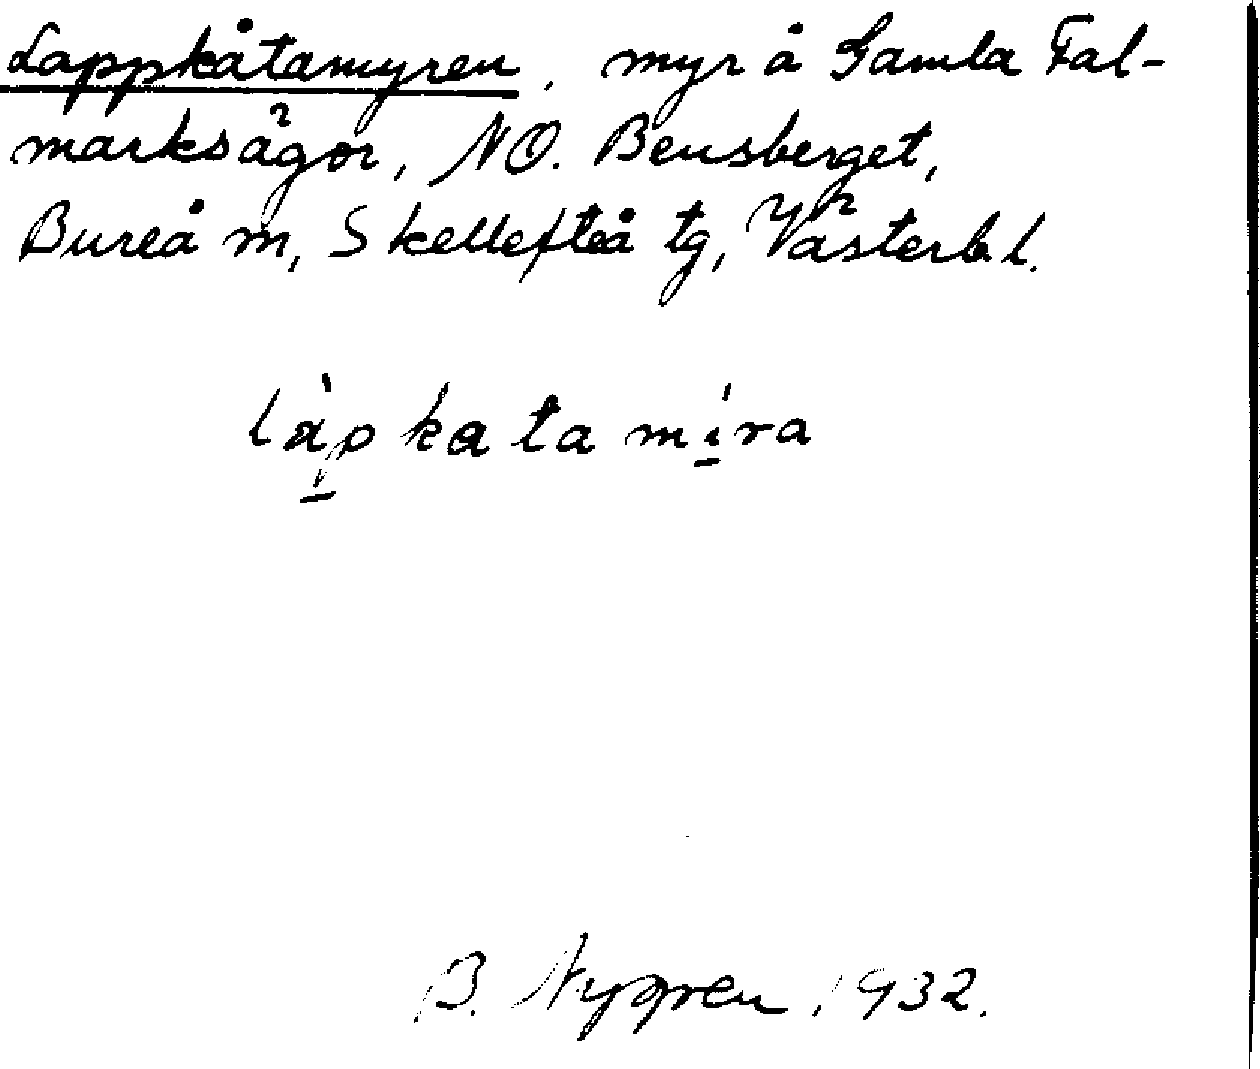 Lappkåtamyren, myr å Gamla Fal-
marksägor, NO. Bensberget,
Bureå m, Skellefteå tg, Västerb. l.
làpkatamíra
B. Nygren 1932.